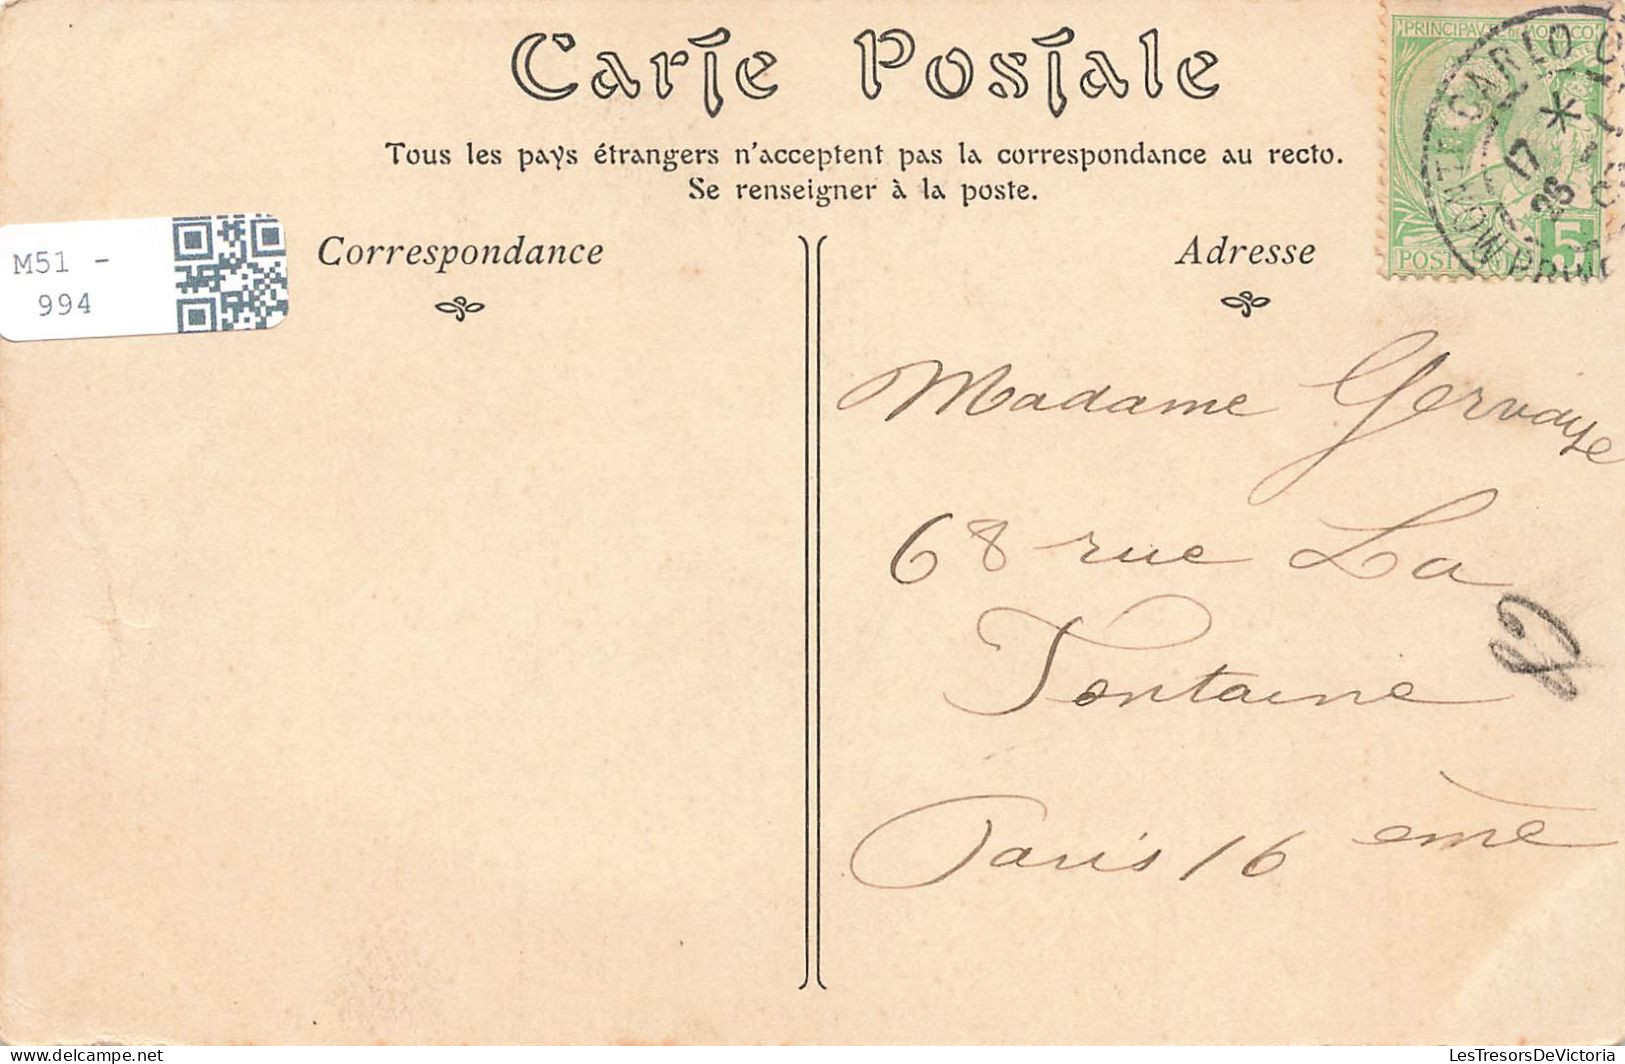 Carte Postale
Tous les pays étrangers n'acceptent pas la correspondance au recto.
Se renseigner à la poste.
Correspondance
Adresse
M51 -
994
PRINCIPAUTÉ DE MONACO
MONTE CARLO
17
26
POSTES
5
Madame Gervaye
68 rue La
Fontaine
Paris 16 ème
LesTresorsDeVictoria
delcampe.net